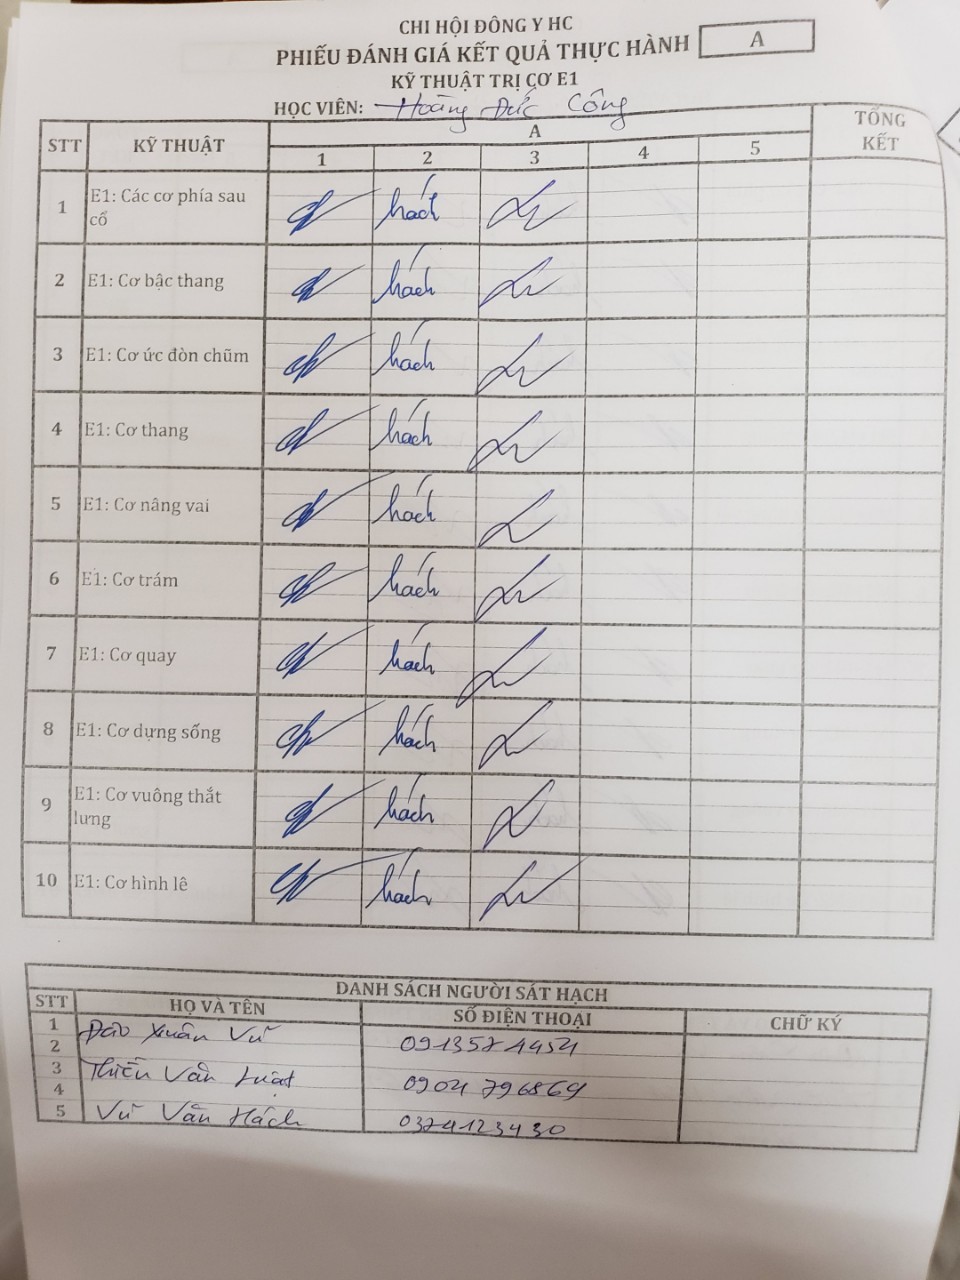 CHI HỘI ĐÔNG Y HC
PHIẾU ĐÁNH GIÁ KẾT QUẢ THỰC HÀNH A
KỸ THUẬT TRỊ CƠ E1
HỌC VIÊN: Hoàng Đức Công
STT KỸ THUẬT A TỔNG KẾT
1 2 3 4 5
1 E1: Các cơ phía sau cổ hách
2 E1: Cơ bậc thang hách
3 E1: Cơ ức đòn chũm hách
4 E1: Cơ thang hách
5 E1: Cơ nâng vai hách
6 E1: Cơ trám hách
7 E1: Cơ quay hách
8 E1: Cơ dựng sống hách
9 E1: Cơ vuông thắt lưng hách
10 E1: Cơ hình lê hách
DANH SÁCH NGƯỜI SÁT HẠCH
STT HỌ VÀ TÊN SỐ ĐIỆN THOẠI CHỮ KÝ
1 Đào Xuân Vũ
2 0913574454
3 Thiều Văn Luật
4 0904796869
5 Vũ Văn Hách 0374123430